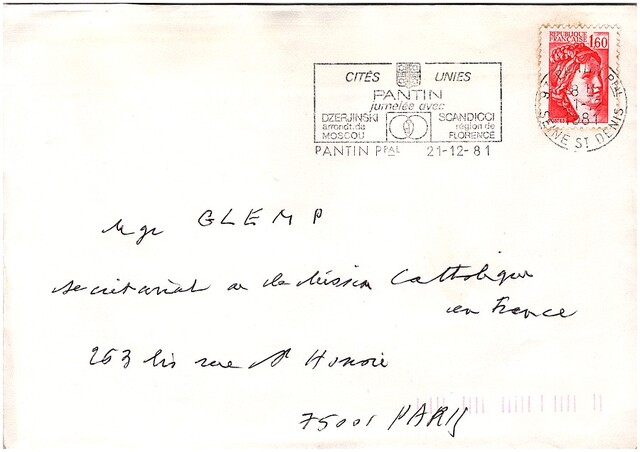 CITÉS UNIES
PANTIN
jumelée avec
DZERJINSKI
arrondt. de
MOSCOU
SCANDICCI
région de
FLORENCE
PANTIN PPAL 21-12-81
REPUBLIQUE
FRANÇAISE
1,60
PPAL
SEINE ST DENIS
Mgr GLEMP
secrétariat de la Mission Catholique
en France
263 bis rue St Honoré
75001 PARIS